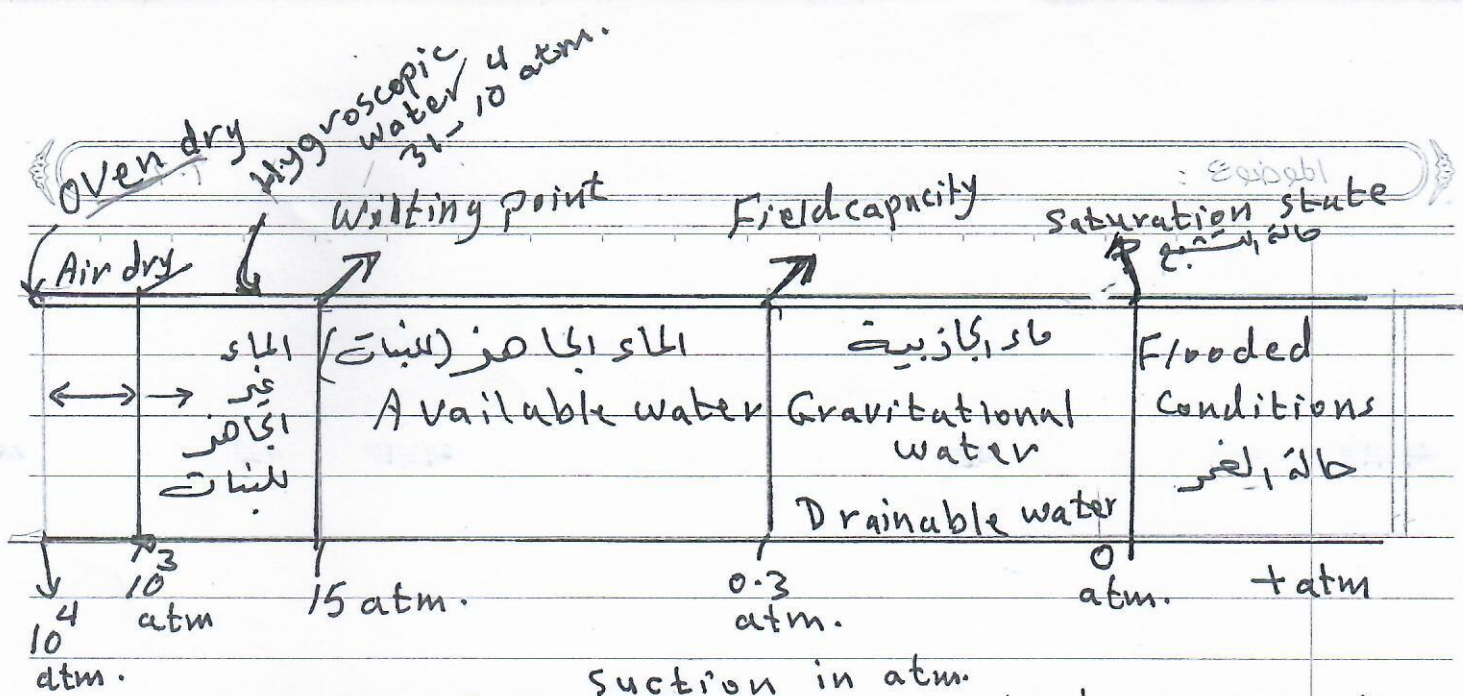 Hygroscopic
water
31 - 10⁴ atm.
الموضوع :
Oven dry
Air dry
Wilting point
Field capacity
Saturation state
حالة التشبع
الماء
غير
الجاهز
للنبات
الماء الجاهز (للنبات)
Available water
ماء الجاذبية
Gravitational
water
Drainable water
Flooded
Conditions
حالة الغمر
10⁴
atm.
10³
atm
15 atm.
0.3
atm.
0
atm.
+ atm
Suction in atm.